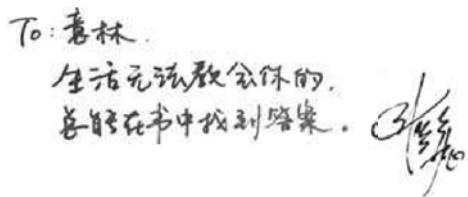 To：意林.
生活无法教会你的,
总能在书中找到答案。